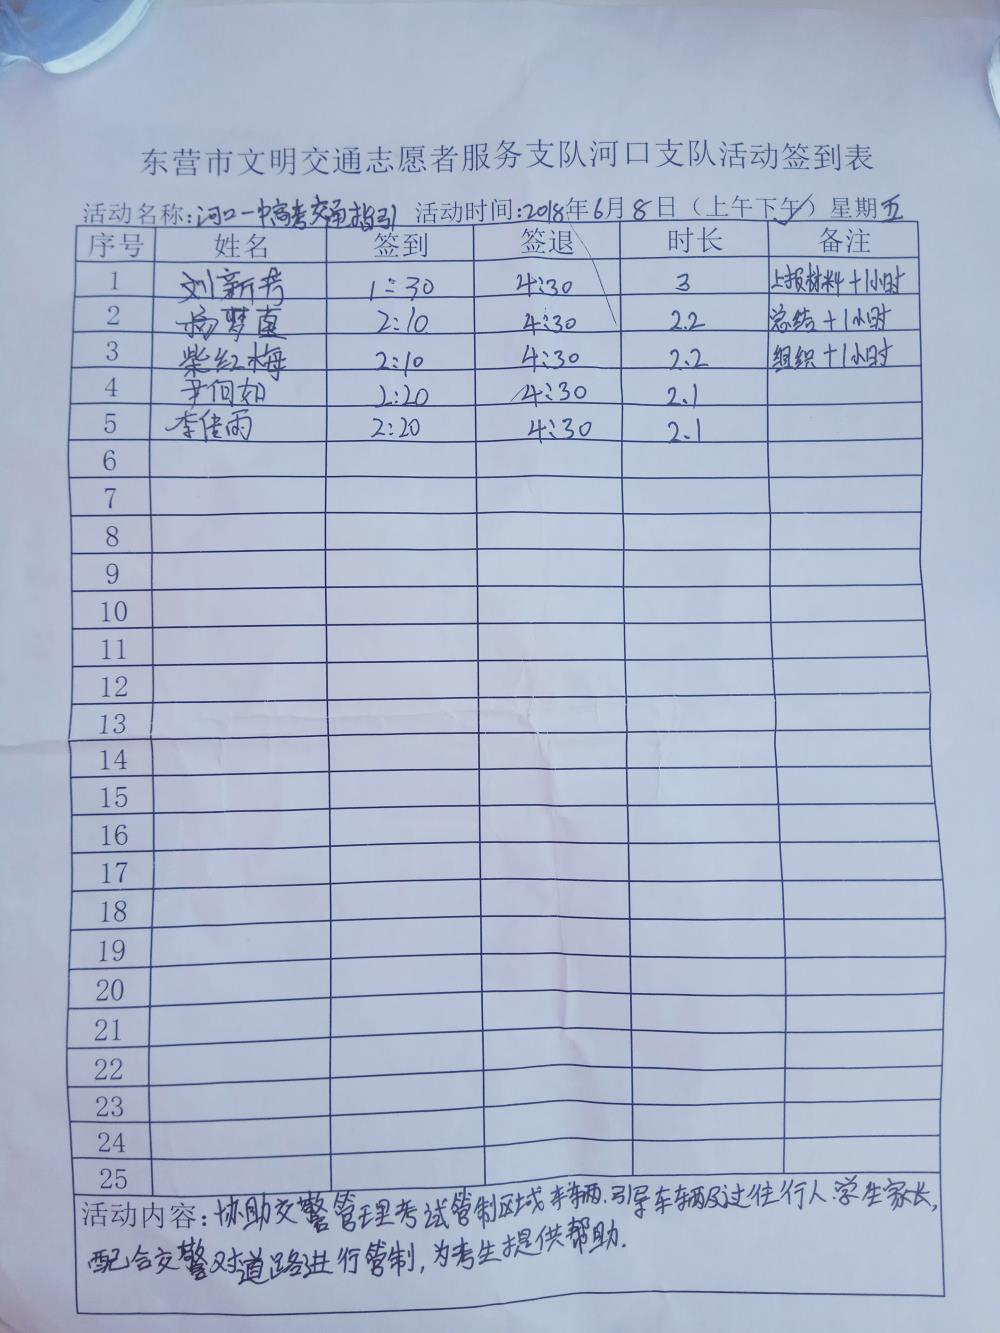 东营市文明交通志愿者服务支队河口支队活动签到表
活动名称:河口一中高考交通指引 活动时间:2018年6月8日（上午下午✓）星期五
序号 姓名 签到 签退 时长 备注
1 刘新 1:30 4:30 3 上报材料+1小时
2 杨梦直 2:10 4:30 2.2 总结+1小时
3 柴红梅 2:10 4:30 2.2 组织+1小时
4 尹何如 2:20 4:30 2.1
5 李佳雨 2:20 4:30 2.1
6
7
8
9
10
11
12
13
14
15
16
17
18
19
20
21
22
23
24
25
活动内容:协助交警管理考试管制区域车辆.引导车辆及过往行人.学生家长,
配合交警对道路进行管制,为考生提供帮助.